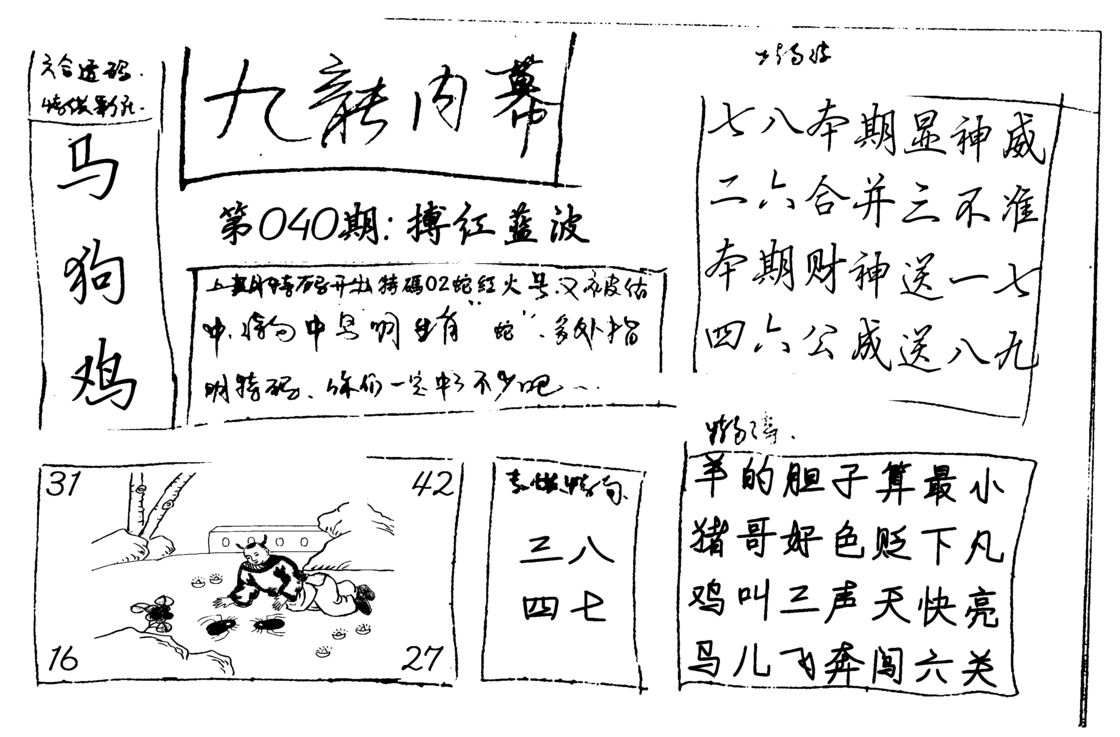 六合透码.
马
狗
鸡
九龍内幕
第040期: 搏红蓝波
上期特码开出特碼02蛇红火号.又被估
中.特句中马明显有“蛇”.多处指
明特码、你们一定中了不少吧…
七八本期显神威
二六合并三不准
本期财神送一七
四六公成送八九
31
42
16
27
三八
四七
羊的胆子算最小
猪哥好色贬下凡
鸡叫三声天快亮
马儿飞奔闯六关